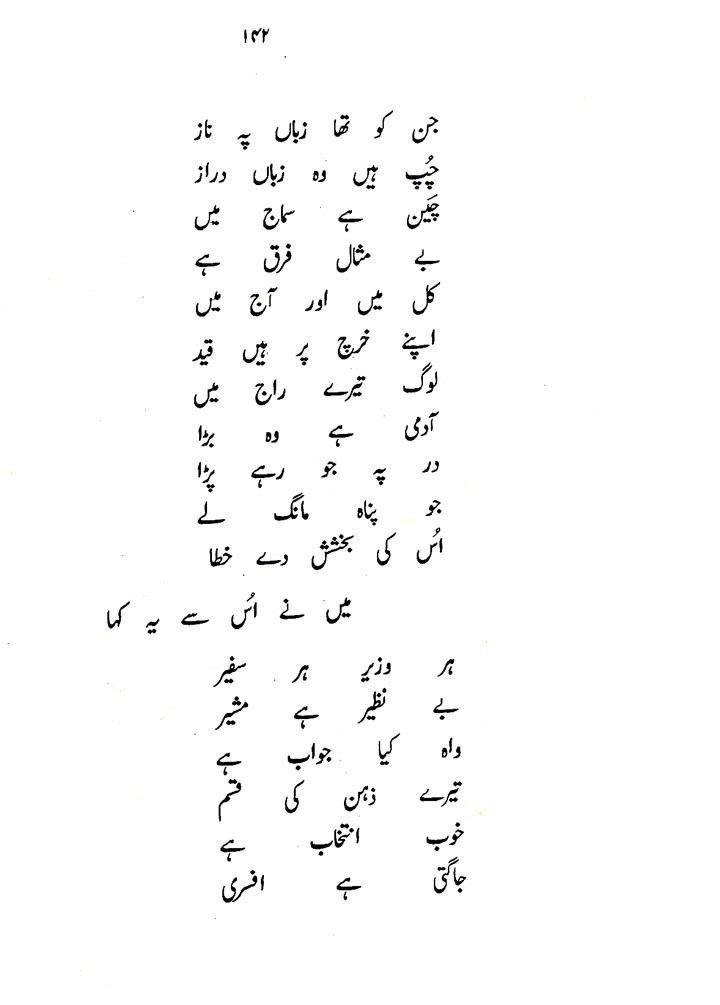 ۱۴۲
جن کو تھا زباں پہ ناز
چُپ ہیں وہ زباں دراز
چَین ہے سماج میں
بے مثال فرق ہے
کل میں اور آج میں
اپنے خرچ پر ہیں قید
لوگ تیرے راج میں
آدمی ہے وہ بڑا
در پہ جو رہے پڑا
جو پناہ مانگ لے
اُس کی بخشش دے خطا
میں نے اُس سے یہ کہا
ہر وزیر ہر سفیر
بے نظیر ہے مشیر
واہ کیا جواب ہے
تیرے ذہن کی قسم
خوب انتخاب ہے
جاگتی ہے افسری